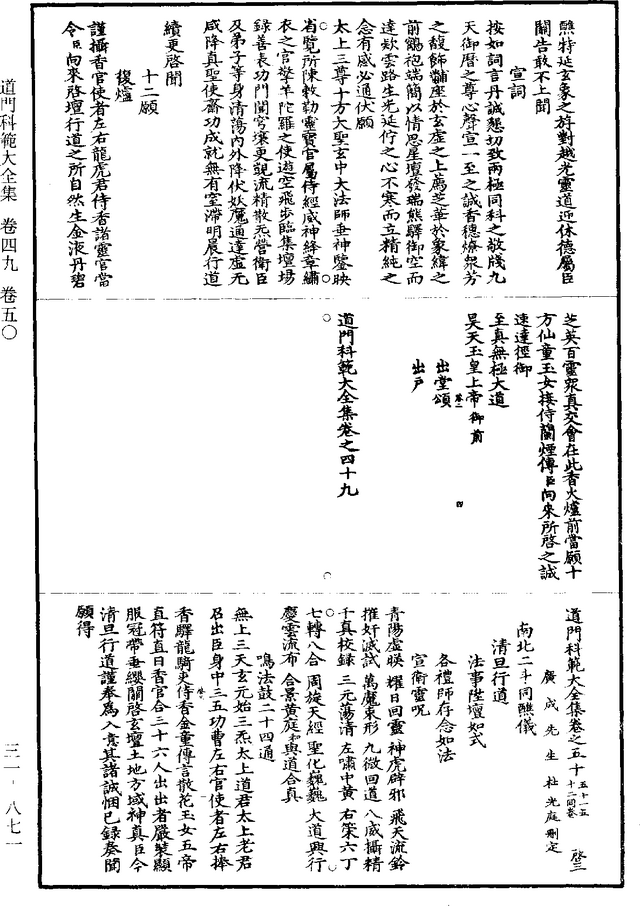 醮特延玄象之斿對越光靈道迎休德屬臣
關告敢不上聞
宣詞
按如詞言丹誠懇切致兩極同科之敬牋九
天御曆之尊心聲宣一至之誠香穗燎衆芳
之馥飾黼座於玄虛之上薦芝華於象緯之
前鶴袍端簡以情思星壇發瑞熊驛御空而
達欵雲路生光延佇之心不寒而立精純之
念有感必通伏願
太上三尊十方大聖玄中大法師垂神鑒映
省覽所陳敕勒靈寶官屬侍經威神絳章繡
衣之官擎羊陀羅之使遊空飛步臨集壇場
錄善表功門闕宮掾更覬流精散炁營衛臣
及弟子等身清蕩內外降伏妖魔通達虛无
咸降真聖使齋功成就無有窒滯明晨行道
續更啓聞
十二願
復爐
謹攝香官使者左右龍虎君侍香諸靈官當
令臣向來啓壇行道之所自然生金液丹碧
芝英百靈衆真交會在此香火爐前當願十
方仙童玉女接侍蘭煙傳臣向來所啓之誠
速達徑御
至真無極大道
昊天玉皇上帝御前
出堂頌
出戶
道門科範大全集卷之四十九
四
道門科範大全集卷之五十 五十一五十二同卷 啓三
廣成先生杜光庭刪定
南北二斗同醮儀
清旦行道
法事陞壇如式
各禮師存念如法
宣衛靈呪
青陽虛映 耀日回靈 神虎辟邪 飛天流鈴
摧奸滅試 萬魔束形 九微回道 八威攝精
千真校錄 三元蕩清 左嘯中黃 右策六丁
七轉八合 周旋天經 聖化巍巍 大道興行
慶雲流布 合景黃庭 與道合真
鳴法鼓二十四通
無上三天玄元始三炁太上道君太上老君
召出臣身中三五功曹左右官使者左右捧
香驛龍騎吏侍香金童傳言散花玉女五帝
直符直日香官合三十六人出出者嚴裝顯
服冠帶垂纓關啓玄壇土地方域神真臣今
清旦行道謹奉爲入意其諸誠悃已錄奏聞
願得
道門科範大全集 卷四九 卷五〇
三一·八七一